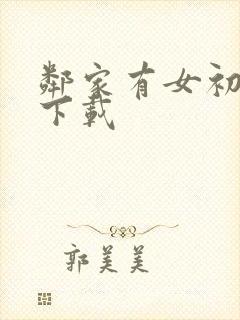 鄰家有女初
下載
郭美美